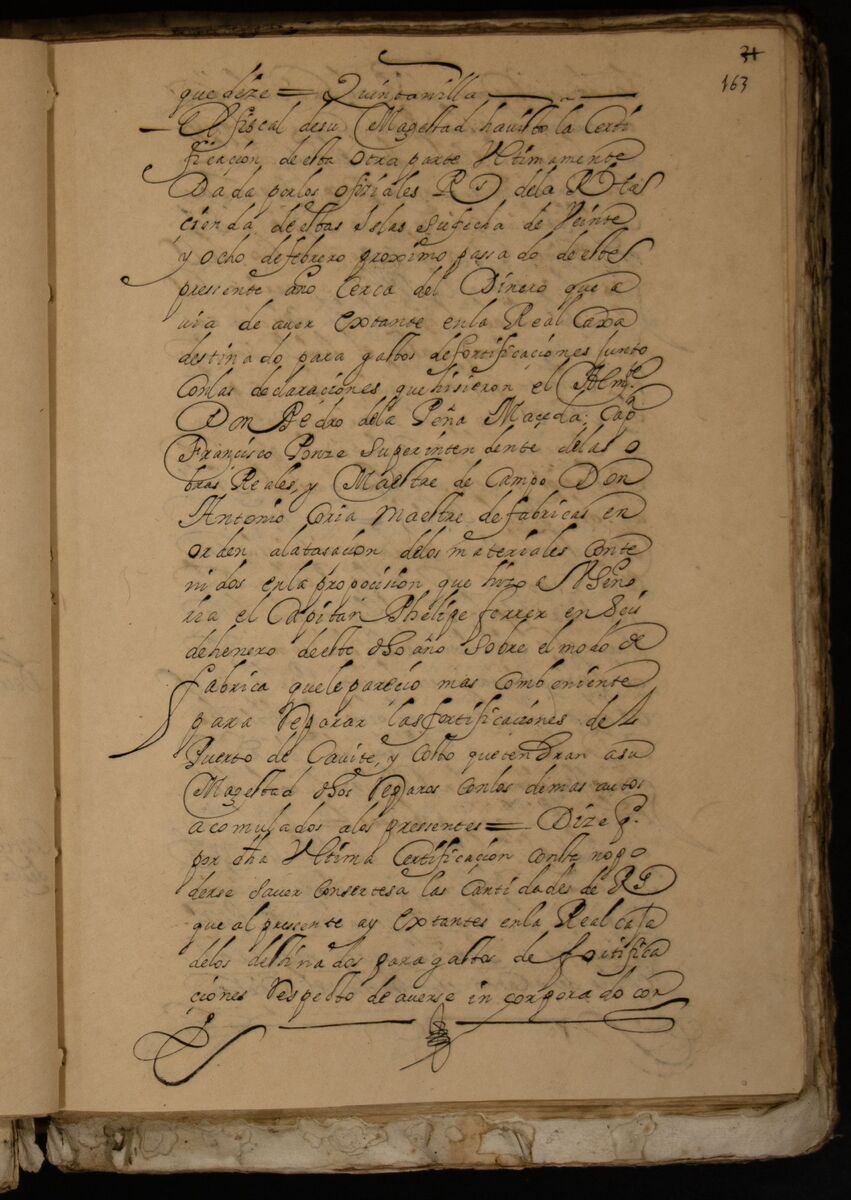 31
163
que dize = Quintanilla
El fiscal de su Magestad havisto la Certi
ficacion de esta otra parte Vltimamente
Dada por los ofiziales Rs de la Rl Has
cienda de estas Islas su fecha de Veinte
y ocho de febrero proximo passado de este
pressente año Cerca del Dinero que a
via de aver extante en la Real Caxa
destinado para gastos de fortificaciones Junto
con las declaraciones que hisieron el Almte
Don Pedro de la Peña Maceda, Capn
Francisco Ponze Superintendente de las o
bras Reales, y Maestre de Campo Don
Antonio Coria Maestre de fabricas en
orden a la tasacion de los materiales conte
nidos en la proposision que hizo a Vs Seño
ria el Capitan Phelipe ferrer en Seis
de henero de este dho año Sobre el modo de
fabrica que le parecio mas combeniente
para Reparar las fortificaciones de el
Puerto de Cavite, y costo que tendran a su
Magestad dhos Reparos con los demas autos
acomulados a los pressentes = Dize q.
por dha Vltima Certificacion conste no po
derse saver con serteza las Cantidades de Ps
que al pressente ay extantes en la Real caja
de los destinados para gastos de fortifica
ciones Respecto de averse incorporado con